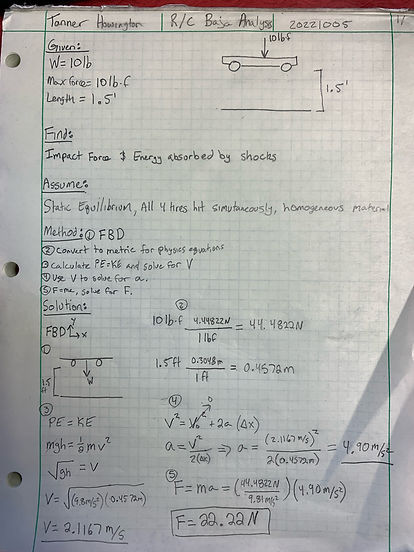 Tanner Howington R/C Baja Analysis 20221005 1/1
Given:
W = 10 lb
Max Force = 10 lb·f
Length = 1.5'
10 lb·f
1.5'
Find:
Impact Force & Energy absorbed by shocks
Assume:
Static Equilibrium, All 4 tires hit simutaneously, homogeneous material
Method: ① FBD
② Convert to metric for physics equations
③ Calculate PE=KE and solve for V
④ Use V to solve for a.
⑤ F=ma, solve for F.
Solution:
FBD y x
①
W
1.5 ft
②
10 lb·f 4.44822 N / 1 lbf = 44.4822 N
1.5 ft 0.3048 m / 1 ft = 0.4572 m
③
PE = KE
mgh = 1/2 m v²
√gh = V
V = √(9.8 m/s²)(0.4572m)
V = 2.1167 m/s
④
V² = V₀² + 2a (Δx)
a = V² / 2(Δx) ⇒ a = (2.1167 m/s)² / 2(0.4572m) = 4.90 m/s²
⑤
F = ma = (44.4822 N / 9.81 m/s²)(4.90 m/s²)
F = 22.22 N